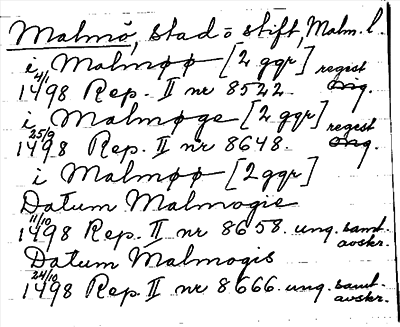 Malmö, stad o stift, Malm. l.
i Malmøø [2 ggr] regist
14/1 1498 Rep. II nr 8522. orig.
i Malmøge [2 ggr] regist
25/9 1498 Rep. II nr 8648. orig.
i Malmøø [2 ggr]
Datum Malmogie
11/10 1498 Rep. II nr 8658. ung. samt. avskr.
Datum Malmogis
24/10 1498 Rep. II nr 8666. ung. samt. avskr.